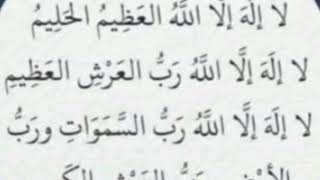 لا إلَهَ إلَّا اللَّهُ العَظِيمُ الحَلِيمُ
لا إلَهَ إلَّا اللَّهُ رَبُّ العَرْشِ العَظِيمِ
لا إلَهَ إلَّا اللَّهُ رَبُّ السَّمَوَاتِ ورَبُّ